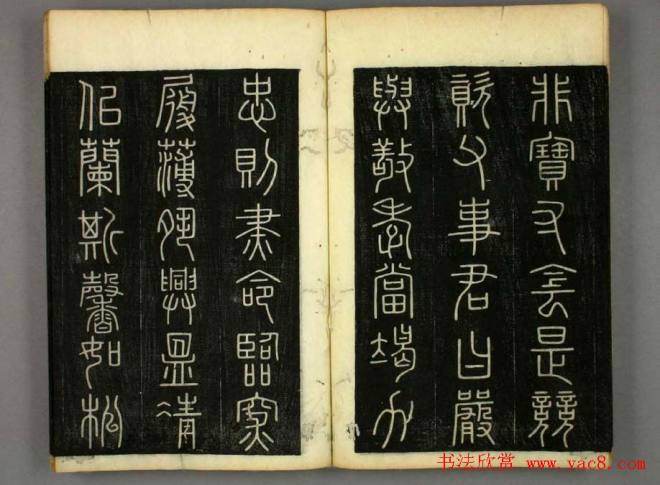 非寶寸陰是競
資父事君曰嚴
與敬孝當竭力
忠則盡命臨深
履薄夙興溫凊
似蘭斯馨如松
书法欣赏 www.yac8.com